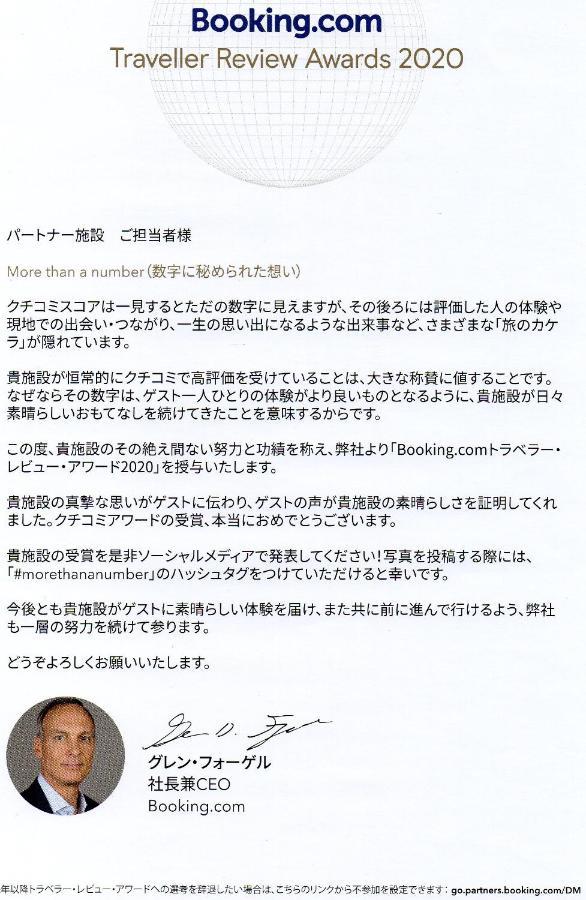 Booking.com
Traveller Review Awards 2020
パートナー施設　ご担当者様
More than a number（数字に秘められた想い）
クチコミスコアは一見するとただの数字に見えますが、その後ろには評価した人の体験や
現地での出会い・つながり、一生の思い出になるような出来事など、さまざまな「旅のカケ
ラ」が隠れています。
貴施設が恒常的にクチコミで高評価を受けていることは、大きな称賛に値することです。
なぜならその数字は、ゲスト一人ひとりの体験がより良いものとなるように、貴施設が日々
素晴らしいおもてなしを続けてきたことを意味するからです。
この度、貴施設のその絶え間ない努力と功績を称え、弊社より「Booking.comトラベラー・
レビュー・アワード2020」を授与いたします。
貴施設の真摯な思いがゲストに伝わり、ゲストの声が貴施設の素晴らしさを証明してくれ
ました。クチコミアワードの受賞、本当におめでとうございます。
貴施設の受賞を是非ソーシャルメディアで発表してください！写真を投稿する際には、
「#morethananumber」のハッシュタグをつけていただけると幸いです。
今後とも貴施設がゲストに素晴らしい体験を届け、また共に前に進んで行けるよう、弊社
も一層の努力を続けて参ります。
どうぞよろしくお願いいたします。
グレン・フォーゲル
社長兼CEO
Booking.com
年以降トラベラー・レビュー・アワードへの選考を辞退したい場合は、こちらのリンクから不参加を設定できます：go.partners.booking.com/DM